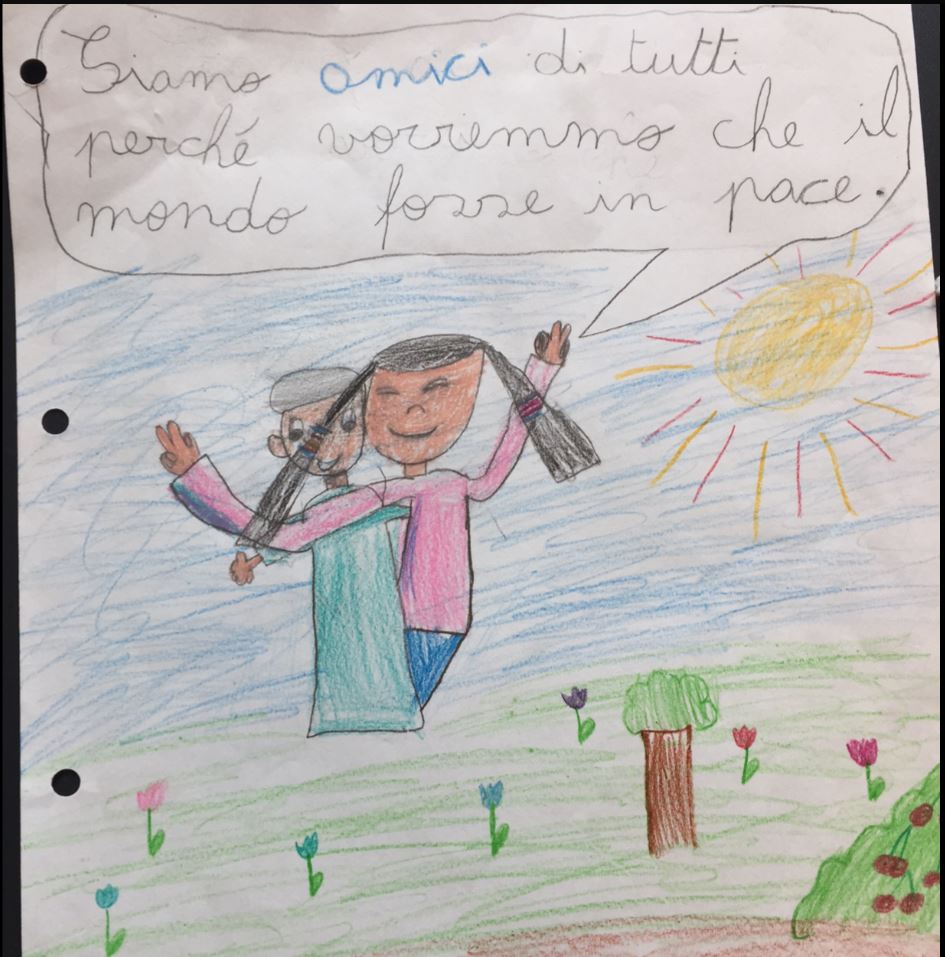 Siamo amici di tutti
perché vorremmo che il
mondo fosse in pace.